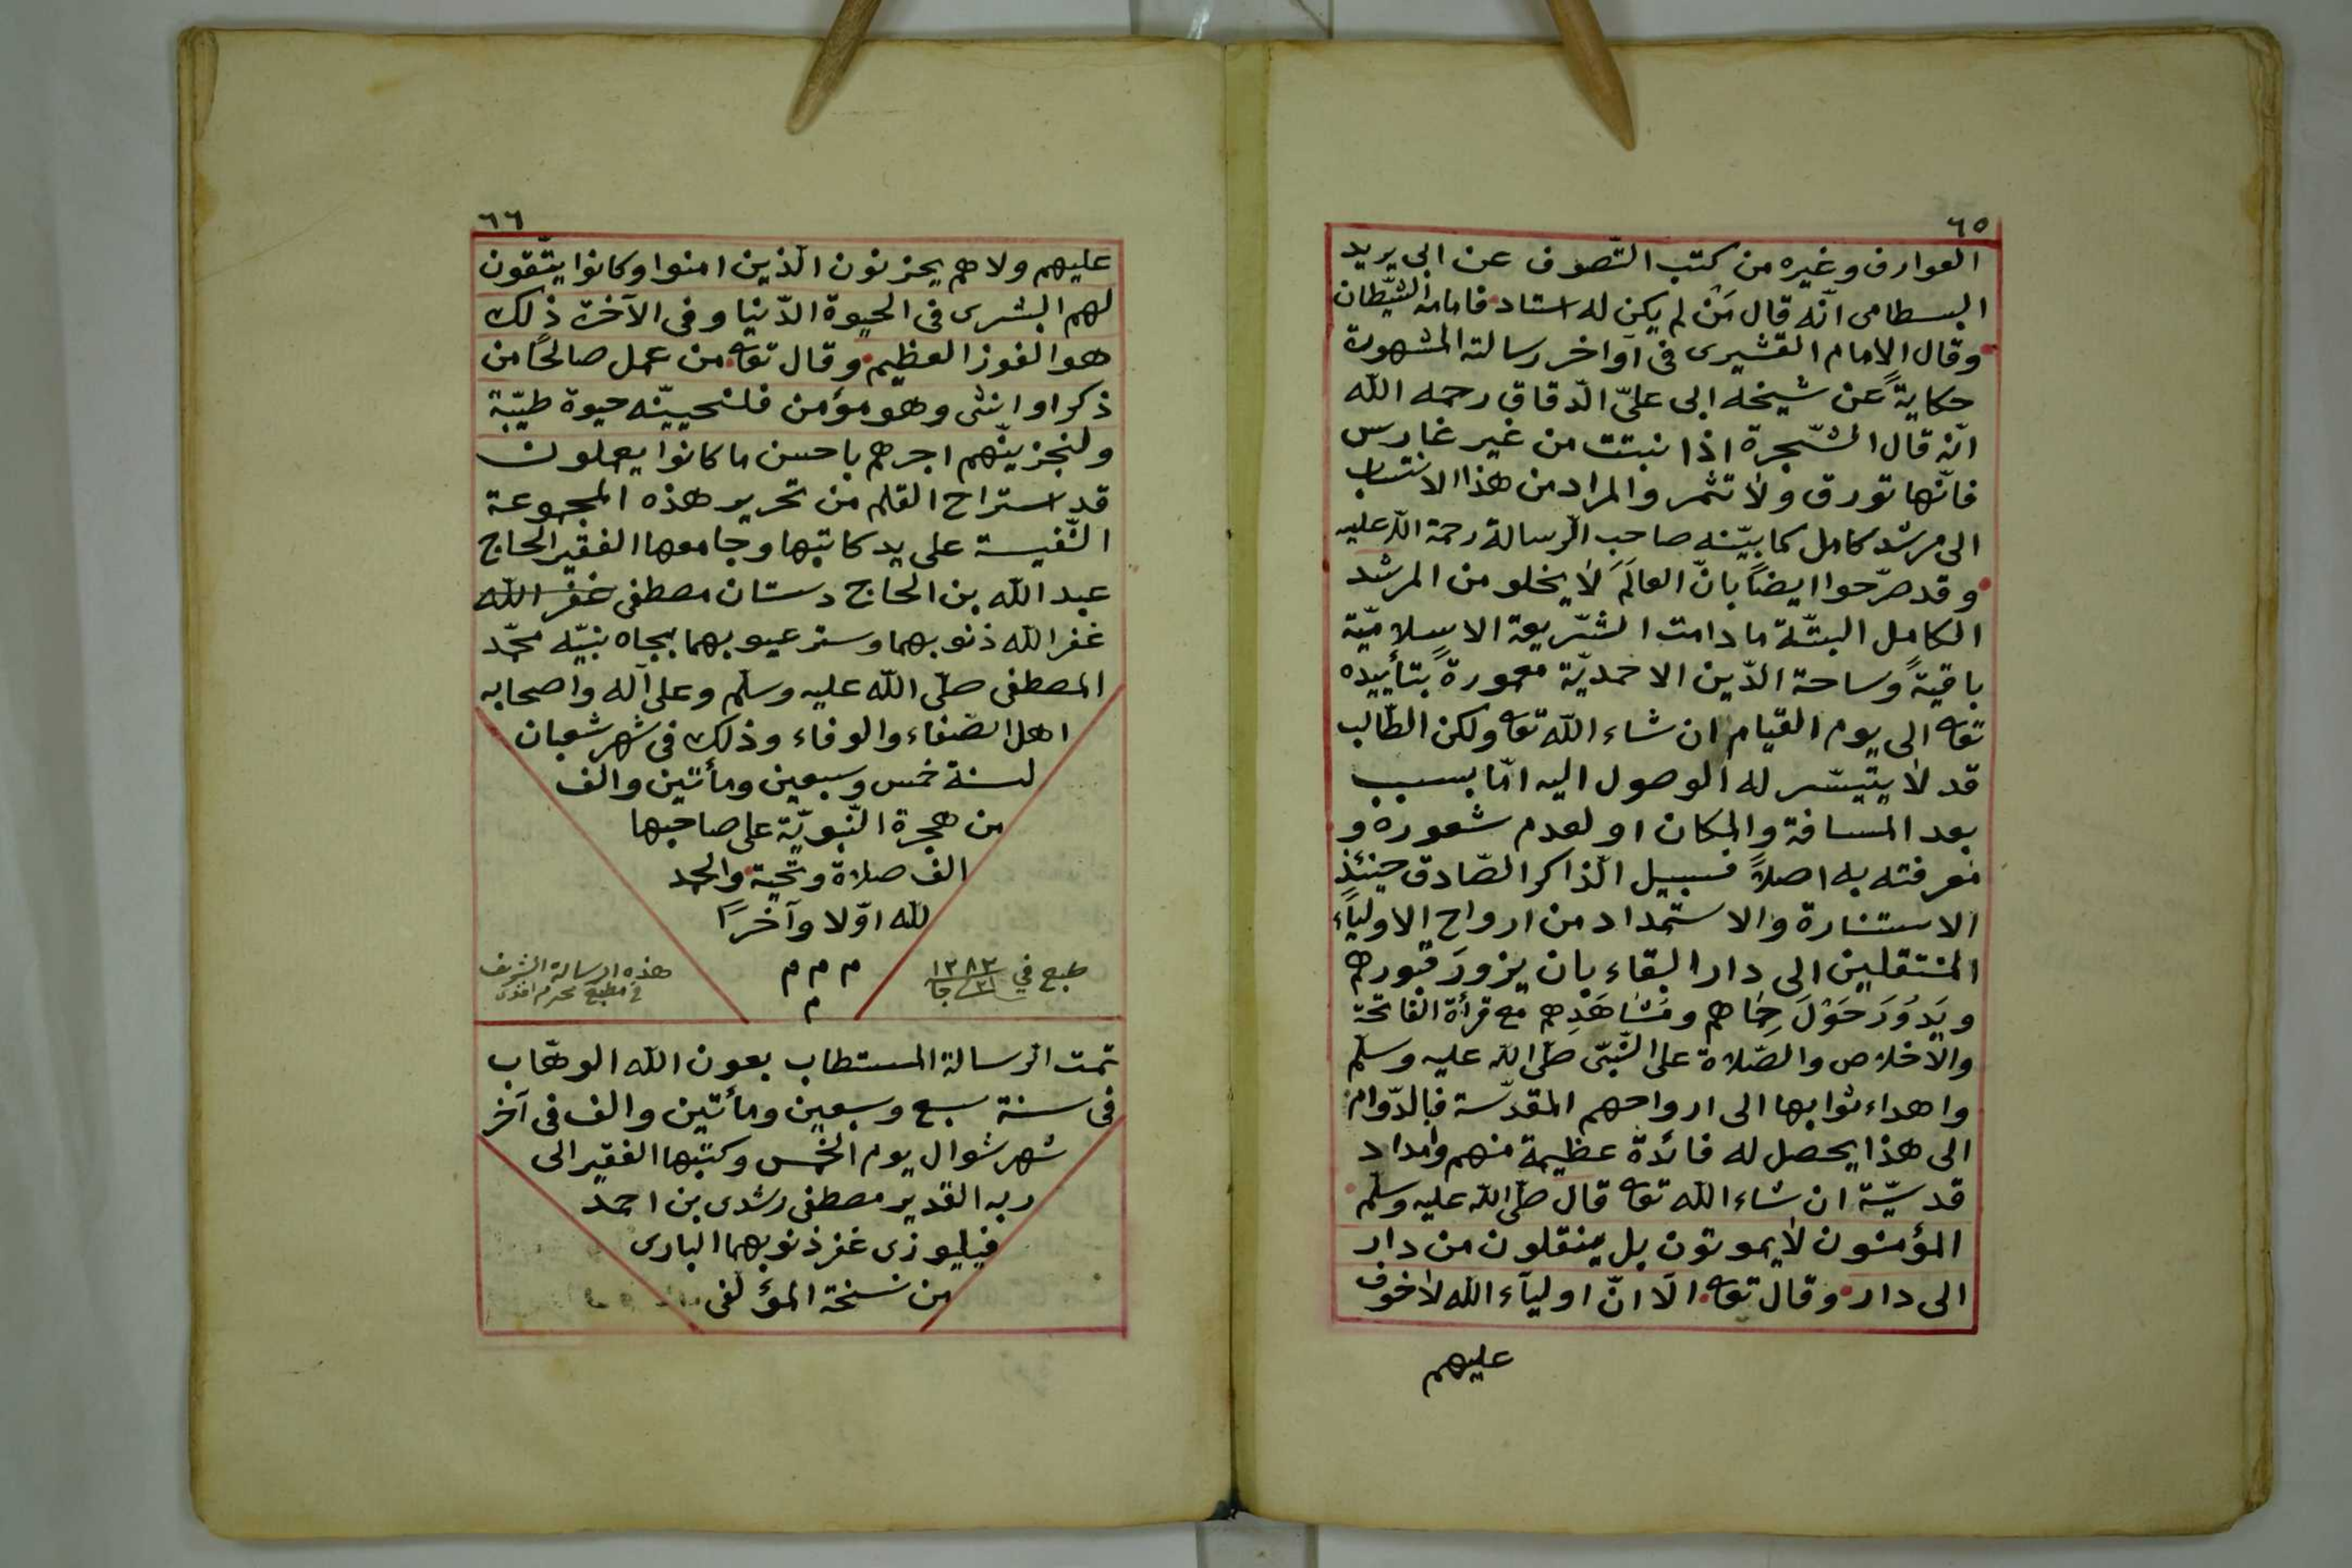 ٦٥
العوارف وغيره من كتب التّصوف عن ابى يريد
البسطامى انّه قال مَنْ لم يكن له استاد فامامه الشّيطان
وقال الامام القشيرى فى آواخر رسالته المشهورة
حكايةً عن شيخه ابى علىّ الدّقاق رحمه الله
انّه قال الشّجرة اذا نبتت من غير غارس
فانّها تورق ولا تثمر والمراد من هذا الانتساب
الى مرشد كامل كما بيّنه صاحب الرّسالة رحمة الله عليه
وقد صرّحوا ايضًا بانّ العالَمَ لا يخلو من المرشد
الكامل البتّة ما دامت الشّريعة الاسلاميّة
باقيةً وساحة الدّين الاحمديّة معمورةً بتأييده
تعه الى يوم القيام ان شاء الله تعه ولكن الطّالب
قد لا يتيسّر له الوصول اليه امّا بسبب
بعد المسافة والمكان او لعدم شعوره و
معرفته به اصلاً فسبيل الذّاكر الصّادق حينئذٍ
الاستنارة والاستمداد من ارواح الاولياء
المنتقلين الى دار البقاء بان يزورَ قبورهم
ويَدُوَرَ حَوْلَ حِمَاهم ومَشَاهَدِهم مع قرأة الفاتحة
والاخلاص والصّلاة على النّبىّ صلّى الله عليه وسلّم
واهداء ثوابها الى ارواحهم المقدّسة فبالدّوام
الى هذا يحصل له فائدة عظيمة منهم وامداد
قدسيّة ان شاء الله تعه قال صلّى الله عليه وسلّم
المؤمنون لا يموتون بل ينقلون من دار
الى دار وقال تعه الا انّ اوليآء الله لا خوف
عليهم
٦٦
عليهم ولا هم يحزنون الّذين امنوا وكانوا يتّقون
لهم البشرى فى الحيوة الدّنيا وفى الآخرة ذلك
هو الفوز العظيم وقال تعه من عمل صالحًا من
ذكر او انثى وهو مؤمن فلنحيينّه حيوة طيّبة
ولنجزينّهم اجرهم باحسن ما كانوا يعملون
قد استراح القلم من تحرير هذه المجموعة
النّفيسة على يد كاتبها وجامعها الفقير الحاج
عبد الله بن الحاج دستان مصطفى غفر الله
غفر الله ذنوبهما وستر عيوبهما بجاه نبيّه محمّد
المصطفى صلّى الله عليه وسلّم وعلى آله واصحابه
اهل الصّفاء والوفاء وذلك فى شهر شعبان
لسنة خمس وسبعين ومأتين والف
من هجرة النّبويّة على صاحبها
الف صلاة وتحية والحمد
لله اوّلا وآخرًا
م م م
م
طبع في ١٢٨٣
٢١ جا
هذه الرسالة الشريف
في مطبع محرم افندى
تمت الرّسالة المستطاب بعون الله الوهّاب
فى سنة سبع وسبعين ومأتين والف فى آخر
شهر شوال يوم الخمس وكتبها الفقير الى
ربه القدير مصطفى رشدى بن احمد
فيليوزى غفر ذنوبهما البارى
من نسخة المؤلفى